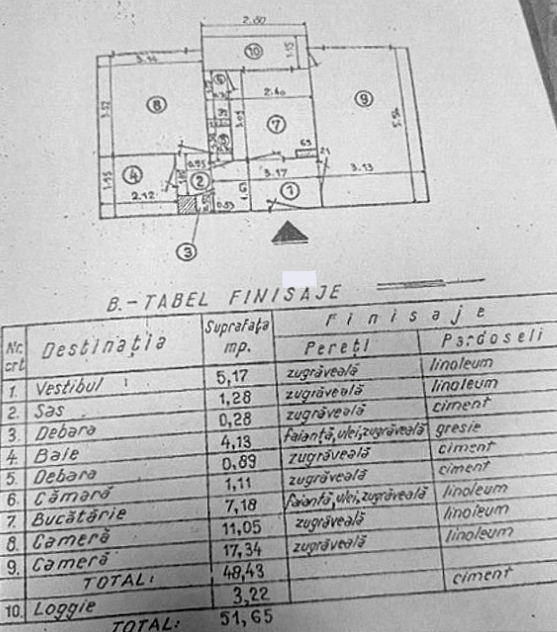 2.80
10
1.15
3.14
6
2.40
8
9
3.52
7
3.02
5.54
63
21
4
0.95
3.17
3.13
1.95
2
1
2.12
0.53
3
B.-TABEL FINISAJE
Nr. crt. Destinația Suprafața mp. Finisaje
Pereți Pardoseli
1. Vestibul 5,17 zugrăveală linoleum
2. Sas 1,28 zugrăveală linoleum
3. Debara 0,28 zugrăveală ciment
4. Baie 4,13 faianță,ulei,zugrăveală gresie
5. Debara 0,89 zugrăveală ciment
6. Cămară 1,11 zugrăveală ciment
7. Bucătărie 7,18 faianță,ulei,zugrăveală linoleum
8. Cameră 11,05 zugrăveală linoleum
9. Cameră 17,34 zugrăveală linoleum
TOTAL: 48,43
10. Loggie 3,22 ciment
TOTAL: 51,65